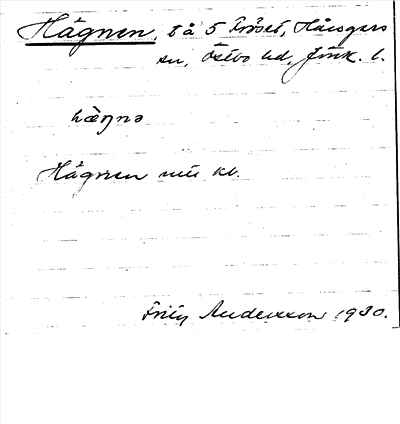 Hägnen, tå 5 Fröset, Hånsgers
sn, Östbo hd, Jönk. l.
hæ̀ŋnə
Hägnen nu kv.
Fritz Andersson 1930.